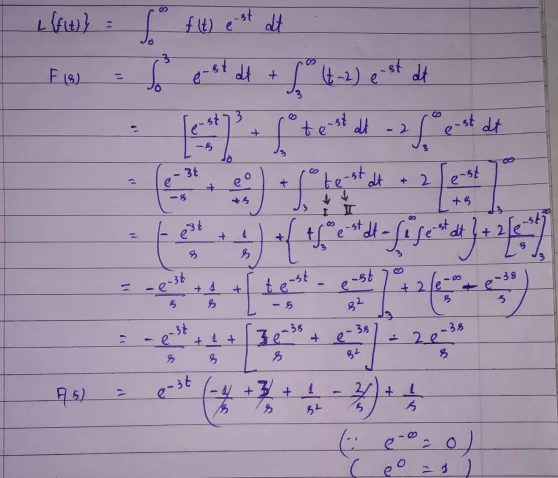 L{f(t)} = ∫₀^∞ f(t) e^-st dt
F(s) = ∫₀^3 e^-st dt + ∫₃^∞ (t-2) e^-st dt
= [e^-st/-s]₀^3 + ∫₃^∞ t e^-st dt - 2∫₃^∞ e^-st dt
= (e^-3t/-s + e^0/+s) + ∫₃^∞ t e^-st dt + 2 [e^-st/+s]₃^∞
↓ ↓
I II
= (-e^-3t/s + 1/s) + {t∫₃^∞ e^-st dt - ∫₃^∞ 1 ∫e^-st dt} + 2[e^-st/s]₃^∞
= -e^-3t/s + 1/s + [t e^-st/-s - e^-st/s²]₃^∞ + 2(e^-∞/s - e^-3s/s)
= -e^-3t/s + 1/s + [3e^-3s/s + e^-3s/s²] - 2e^-3s/s
F(s) = e^-3t (-1/s + 3/s + 1/s² - 2/s) + 1/s
(∵ e^-∞ = 0)
( e^0 = 1 )